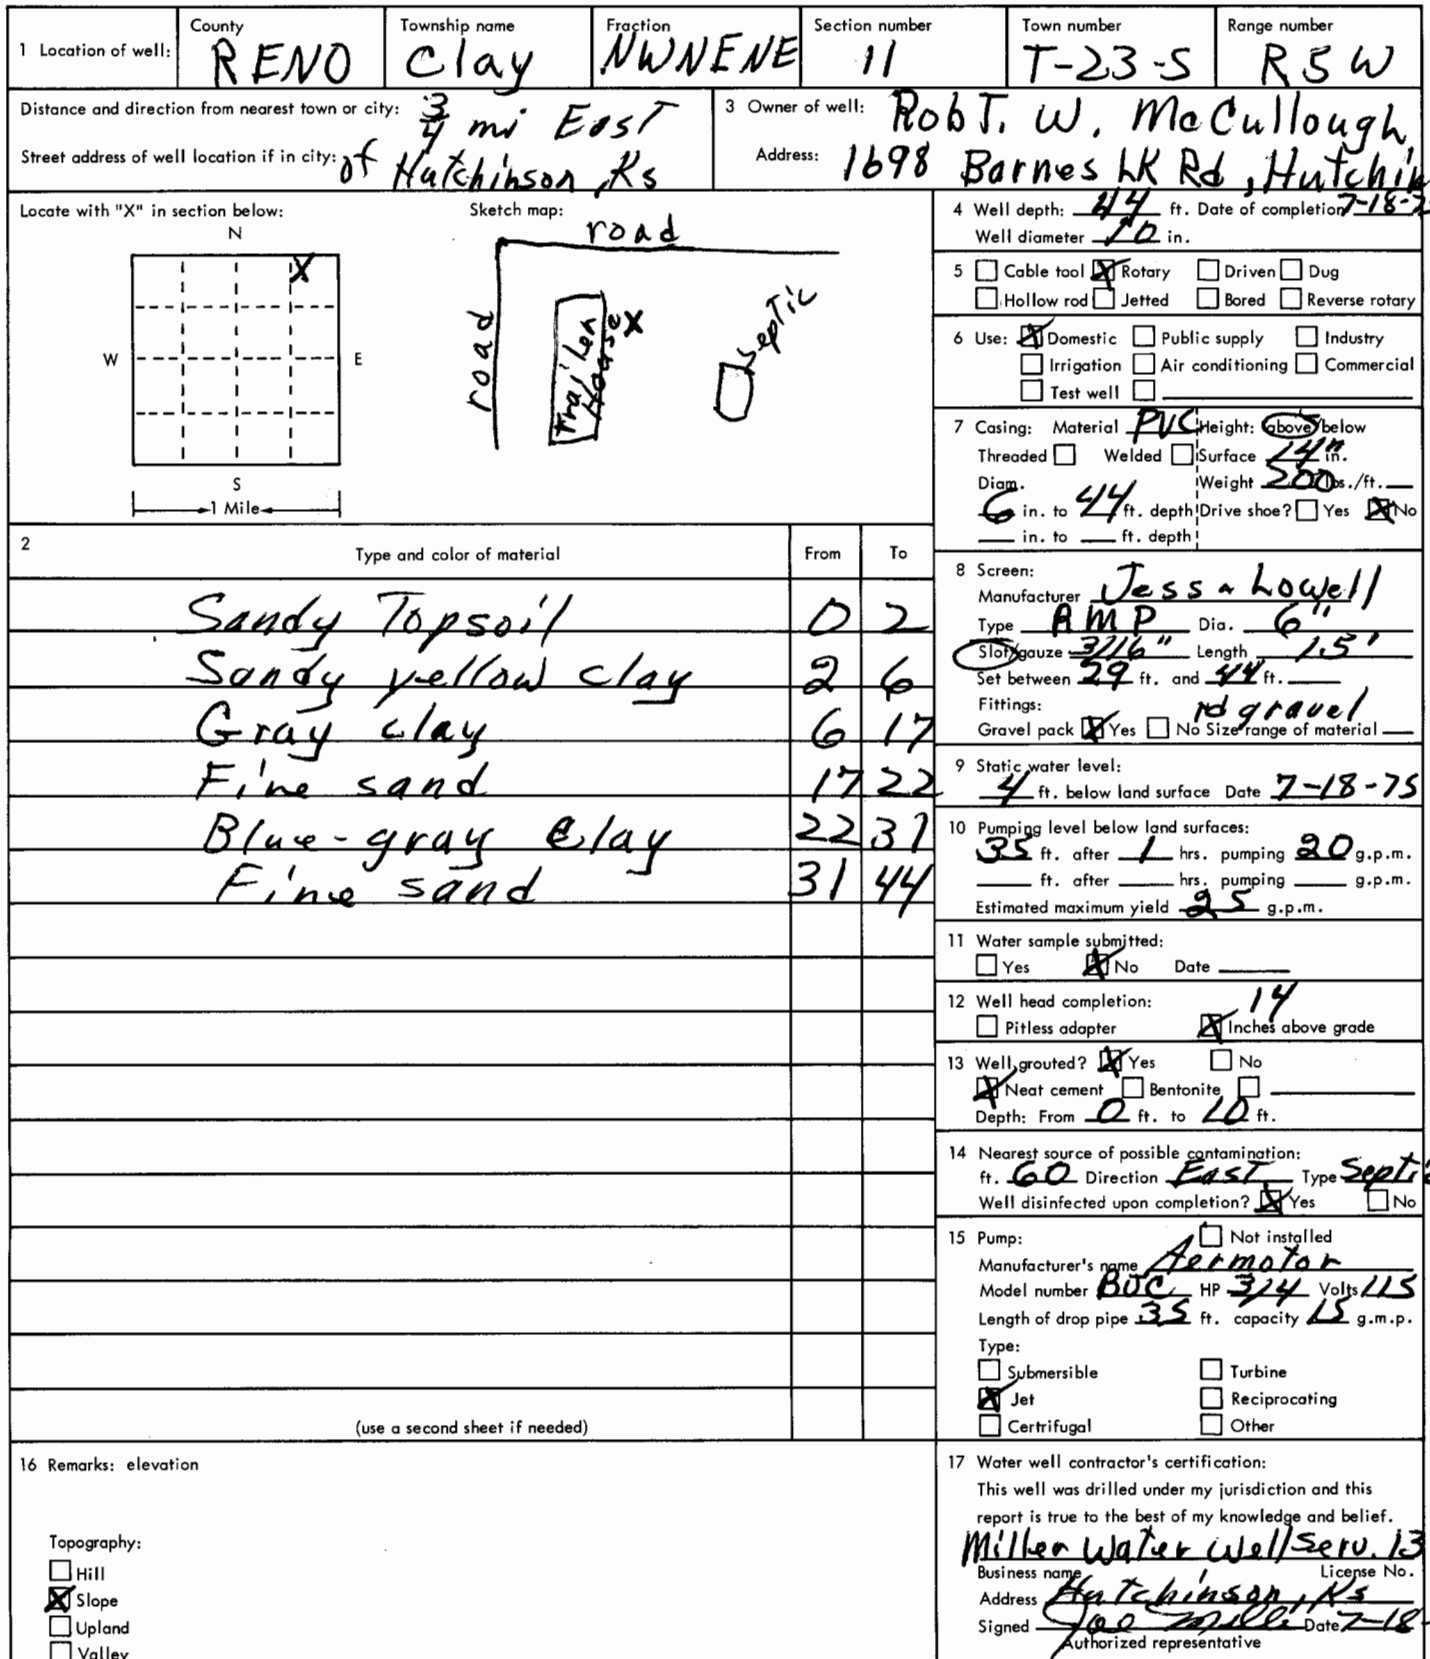 1 Location of well: County RENO Township name Clay Fraction NWNENE Section number 11 Town number T-23-S Range number R5W
Distance and direction from nearest town or city: 3/4 mi East
Street address of well location if in city: of Hutchinson, Ks
3 Owner of well: Robt. W. McCullough,
Address: 1698 Barnes LK Rd, Hutchin
Locate with "X" in section below:
N
X
W E
S
1 Mile
Sketch map:
road
road
Trailer House
X
septic
2 Type and color of material From To
Sandy Topsoil 0 2
Sandy yellow clay 2 6
Gray clay 6 17
Fine sand 17 22
Blue-gray Clay 22 31
Fine sand 31 44
(use a second sheet if needed)
4 Well depth: 44 ft. Date of completion 7-18-7
Well diameter 10 in.
5 Cable tool X Rotary Driven Dug
Hollow rod Jetted Bored Reverse rotary
6 Use: X Domestic Public supply Industry
Irrigation Air conditioning Commercial
Test well
7 Casing: Material PVC Height: above/below
Threaded Welded Surface 14" in.
Diam. Weight 200 lbs./ft.
6 in. to 44 ft. depth Drive shoe? Yes X No
in. to ft. depth
8 Screen:
Manufacturer Jess - Lowell
Type RMP Dia. 6"
Slot/gauze 3/16" Length 15'
Set between 29 ft. and 44 ft.
Fittings: rd gravel
Gravel pack X Yes No Size range of material
9 Static water level:
4 ft. below land surface Date 7-18-75
10 Pumping level below land surfaces:
35 ft. after 1 hrs. pumping 20 g.p.m.
ft. after hrs. pumping g.p.m.
Estimated maximum yield 25 g.p.m.
11 Water sample submitted:
Yes X No Date
12 Well head completion: 14
Pitless adapter X Inches above grade
13 Well grouted? X Yes No
X Neat cement Bentonite
Depth: From 0 ft. to 10 ft.
14 Nearest source of possible contamination:
ft. 60 Direction East Type Septic
Well disinfected upon completion? X Yes No
15 Pump: Not installed
Manufacturer's name Aermotor
Model number BJC HP 3/4 Volts 115
Length of drop pipe 35 ft. capacity 15 g.m.p.
Type:
Submersible Turbine
X Jet Reciprocating
Certrifugal Other
16 Remarks: elevation
Topography:
Hill
X Slope
Upland
Valley
17 Water well contractor's certification:
This well was drilled under my jurisdiction and this
report is true to the best of my knowledge and belief.
Miller Water Well Serv. 13
Business name License No.
Address Hutchinson, Ks
Signed Joe Miller Date 7-18-
Authorized representative